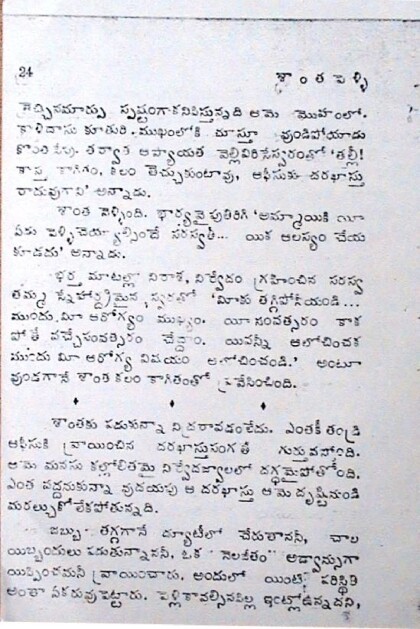 24 శాంత పెళ్ళి
వచ్చినమార్పు స్పష్టంగాకనిపిస్తున్నది ఆమె మొహంలో.
కాళిదాసు కూతురి ముఖంలోకి చూస్తూ వుండిపోయాడు
కొంతసేపు. తర్వాత ఆప్యాయత వెల్లివిరిసేస్వరంతో 'తల్లీ!
కాస్త కాగితం, కలం తెచ్చుకుంటావు, ఆఫీసుకు దరఖాస్తు
రాదువుగాని' అన్నాడు.
శాంత వెళ్ళింది. భార్యవైపుతిరిగి 'అమ్మాయికి యీ
పెళ్ళిచెయ్యాల్సిందే సరస్వతీ... యిక ఆలస్యం చేయ
కూడదు' అన్నాడు.
భర్త మాటల్లో నిరాశ, నిర్వేదం గ్రహించిన సరస్వ
తమ్మ స్నేహార్ద్రమైన స్వరంతో 'మీకు తగ్గిపోనీయండి...
ముందు మీ ఆరోగ్యం ముఖ్యం. యీసంవత్సరం కాక
పోతే వచ్చేసంవత్సరం చేద్దాం. యివన్నీ ఆలోచించక
ముందు మీ ఆరోగ్య విషయం ఆలోచించండి.' అంటూ
వుండగానే శాంత కలం కాగితంతో ప్రవేసించింది.
శాంతకు పడుకున్నా నిద్రరావడంలేదు. ఎంతకీ తండ్రి
ఆఫీసుకి వ్రాయించిన దరఖాస్తుసంగతే గుర్తువస్తోంది.
ఆమె మనసు కల్లోలితమై నిర్వేదజ్వాలలో దగ్ధమైపోతోంది.
ఎంత వద్దనుకున్నా వుదయపు ఆ దరఖాస్తు ఆమెదృష్టినుండి
మరల్చుకోలేకపోతున్నది.
జబ్బు తగ్గగానే డ్యూటీలో చేరుతానని, చాల
యిబ్బందులు పడుతున్నానని, ఒక నెలజీతం అడ్వాన్సుగా
యిప్పించమనీ వ్రాయించారు. అందులో యింటి పరిస్థితి
అంతా ఏకరువుపెట్టారు. పెళ్లికావల్సినపిల్ల ఇంట్లోఉన్నదని,